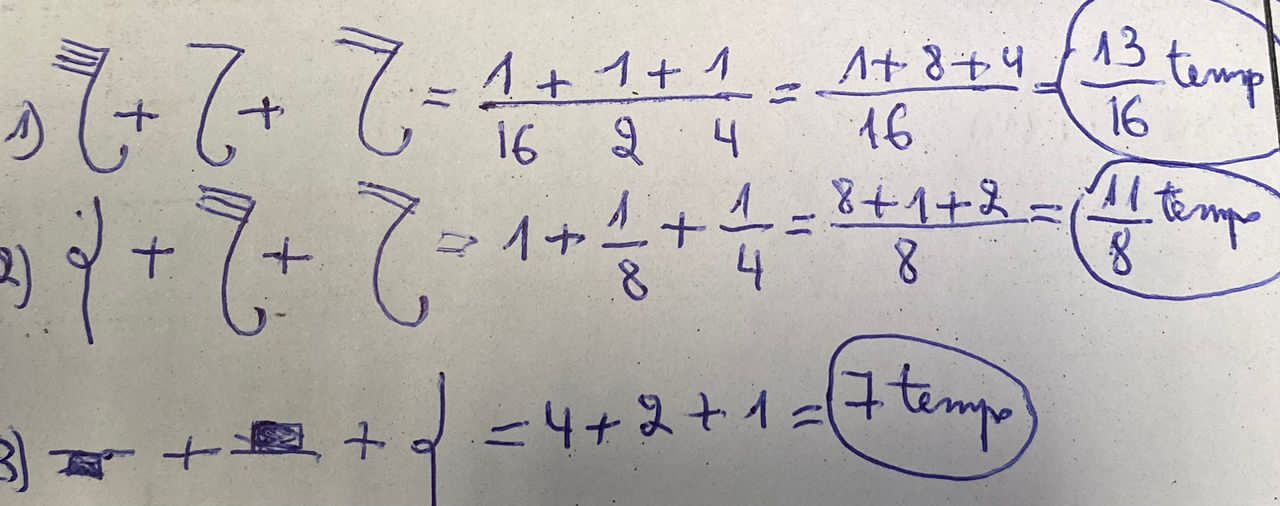 1) + + = 1/16 + 1/2 + 1/4 = (1+8+4)/16 = 13/16 temp
2) + + => 1 + 1/8 + 1/4 = (8+1+2)/8 = 11/8 temp
3) + + = 4+2+1 = 7 temp